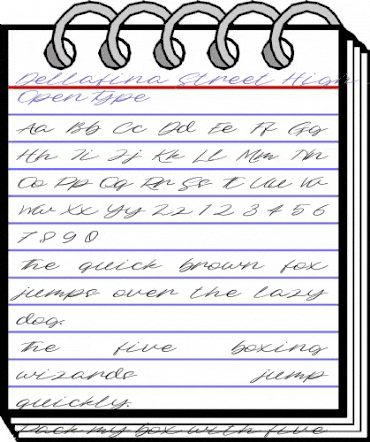 Dellafina Street High
OpenType
Aa Bb Cc Dd Ee Ff Gg
Hh Ii Jj Kk Ll Mm Nn
Oo Pp Qq Rr Ss Tt Uu Vv
Ww Xx Yy Zz 1 2 3 4 5 6
7 8 9 0
The quick brown fox
jumps over the lazy
dog.
The five boxing
wizards jump
quickly.
Pack my box with five